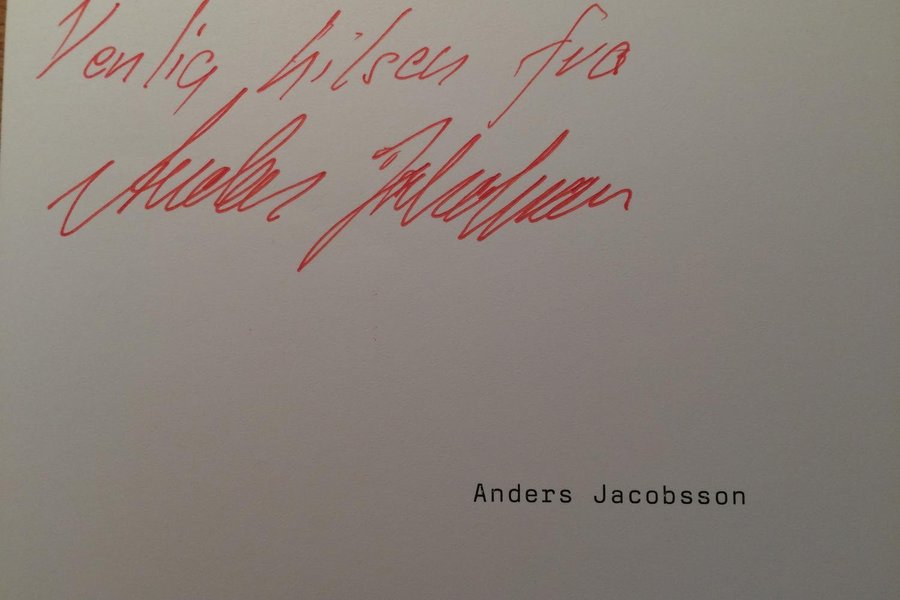 Venlig hilsen fra
Anders Jacobsson
Anders Jacobsson